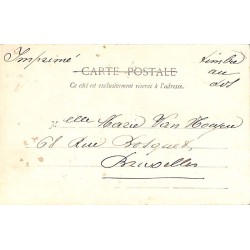 Imprimé
timbre
au
dos
CARTE POSTALE
Ce côté est exclusivement réservé à l'adresse.
Melle Marie Van
68 Rue Bosquet
Bruxelles